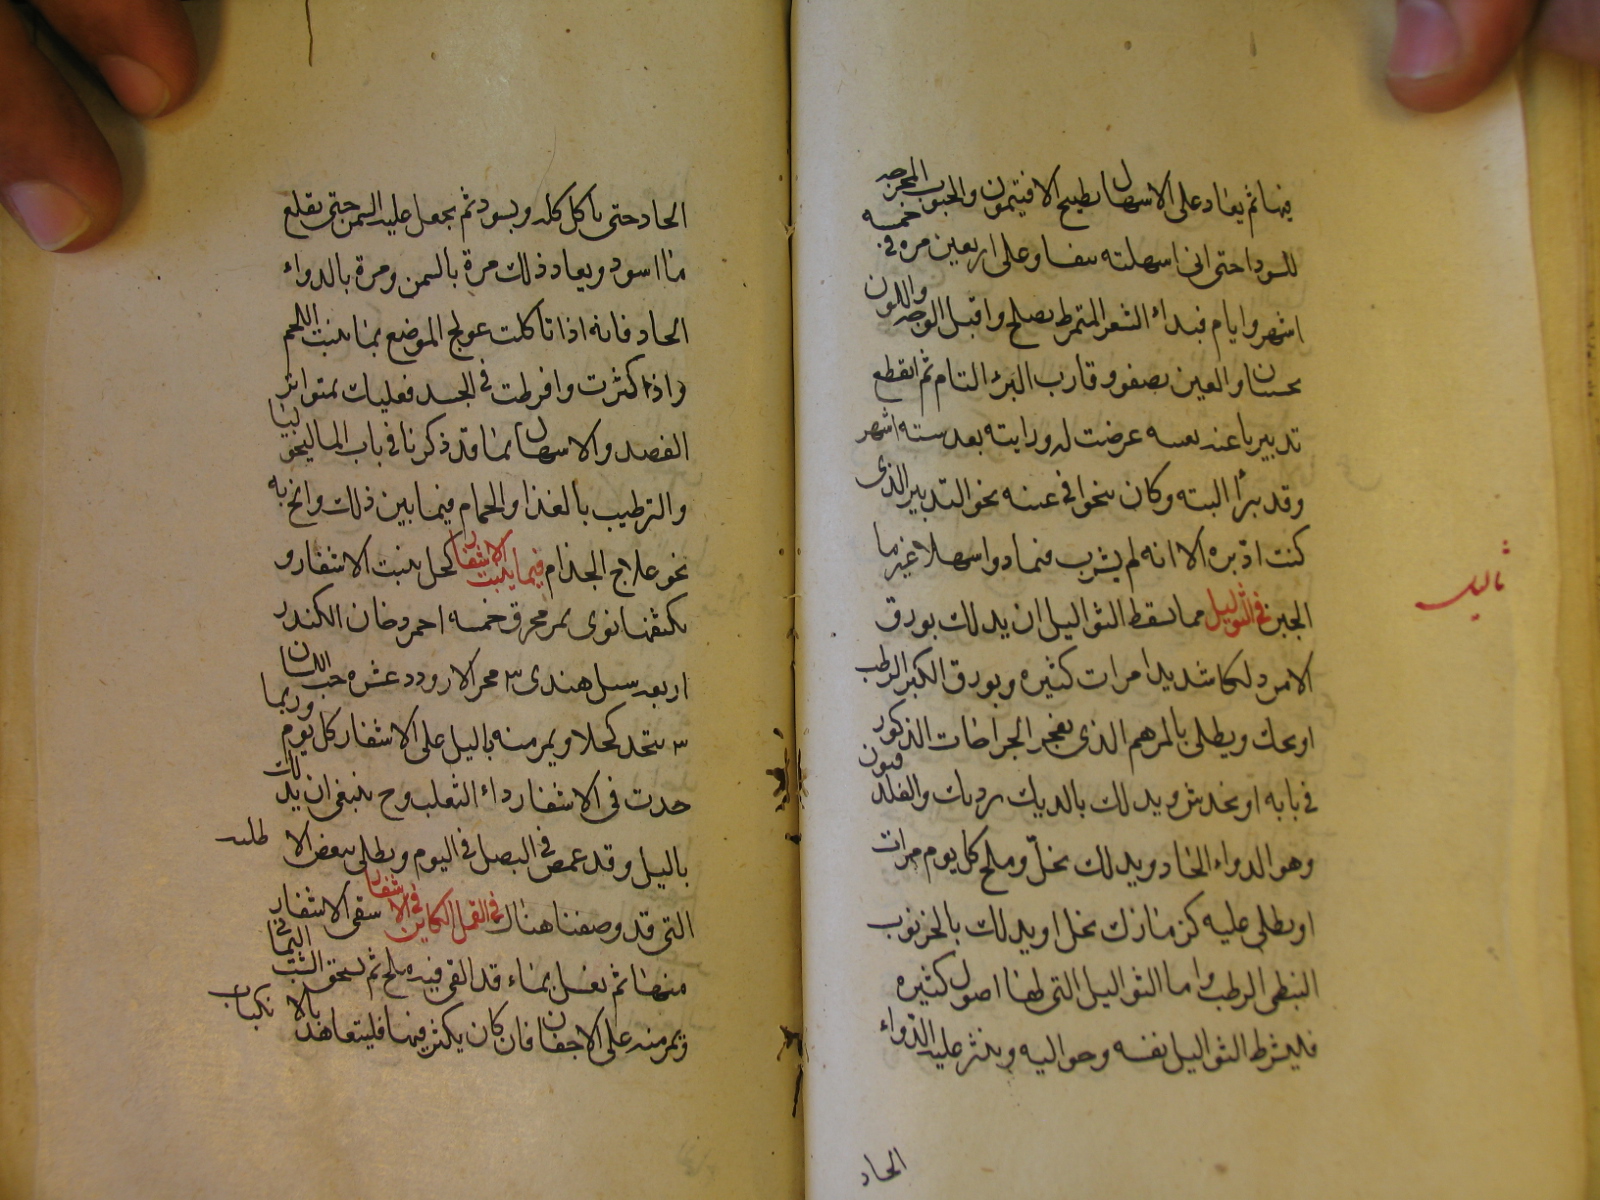 فيها ثم يعاد على الاسهال بطبيخ الافيتمون والحبوب المخرجه
للسودا حتى انى اسهلته نيفا وعلى اربعين مره فى خمسه
اشهر وايام فبداء الشعر المتمرط يصلح واقبل الوجه واللون
يحسنان والعين يصفو وقارب البرء التام ثم انقطع
تدبيرنا عند نفسه عرضت له ورايته بعد سته اشهر
وقد برأ البته وكان ينحوا فى عينه نحو التدبير الذى
كنت ادبره الا انه لم يشرب فيها دوا مسهلا غير ما
الجبن فى الثوليل مما يسقط الثواليل ان يدلك بورق
الامرد لكا شديدا مرات كثيره وبورق الكبر الرطب
او يحك ويطلى بالمرهم الذى يفجر الجراحات المذكور
فى بابه او يخدش ويدلك بالديك برديك والفلدفيون
وهو الدواء الحاد ويدلك بخل وملح كل يوم مرات
او يطلى عليه كزمازك بخل او يدلك بالخرنوب
النبطى الرطب واما الثواليل التى لها اصول كثيره
فليشرط الثواليل نفسه وحواليه وينثر عليه الدواء
الحاد
ثاليل
الحاد حتى ياكل كله ويسود ثم يجعل عليه السمن حتى يقلع
ما اسود ويعاد ذلك مرة بالسمن ومرة بالدواء
الحاد فانه اذا تاكلت عولج الموضع بما ينبت اللحم
واذا كثرت وافرطت فى الجسد فعليك بمتواتر
الفصد والاسهال بما قد ذكرنا فى باب الماليخوليا
والترطيب بالغذا والحمام فيما بين ذلك وانح به
نحو علاج الجذام فيما ينبت الاشفار كحل ينبت الاشفار و
يكثفها نوى تمر محرق خمسه احمر دخان الكندر
اربعه سنبل هندى ٣ حجر الازورد عشره حب اللسان
٣ يتخذ كحلا ويمر منه باليل على الاشفار كل يوم وربما
حدث فى الاشفار داء الثعلب وح ينبغى ان يدلك
باليل وقد غمس فى البصل فى اليوم ويطلى ببعض الا طليه
التى قد وصفنا هناك فى القمل الكاين فى الاشفار ينقى الاشفار
منها ثم يغسل بماء قد القى فيه ملح ثم يسحق الشب اليمانى
ويمر منه على الاجفان فان كان يكثر فيها فليتعاهد بالا نكباب